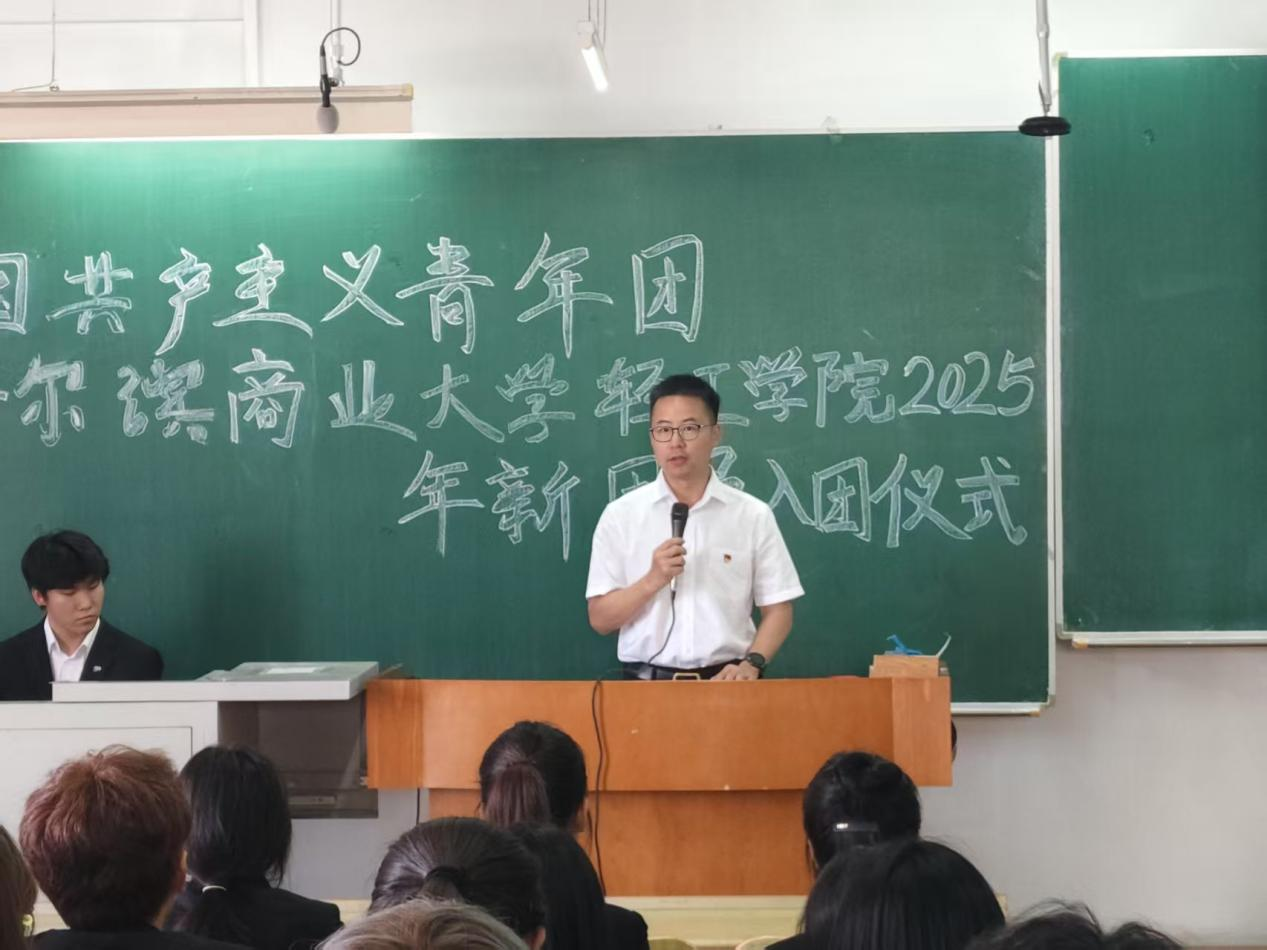 国共产主义青年团
尔滨商业大学轻工学院2025
年新团员入团仪式